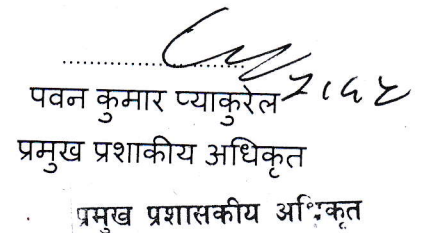 पवन कुमार प्याकुरेल
प्रमुख प्रशाकीय अधिकृत
प्रमुख प्रशासकीय अधिकृत